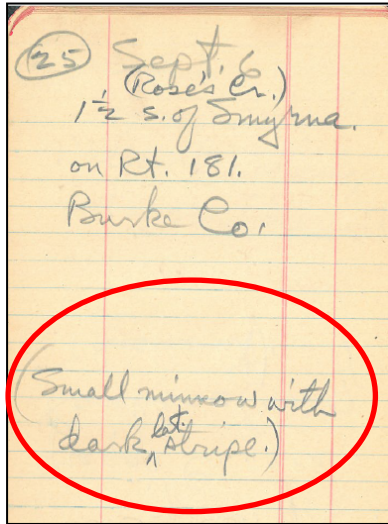 25 Sept. 6
(Rose's Cr.)
1½ s. of Smyrna.
on Rt. 181.
Burke Co.
(Small minnow with
dark lat. stripe.)